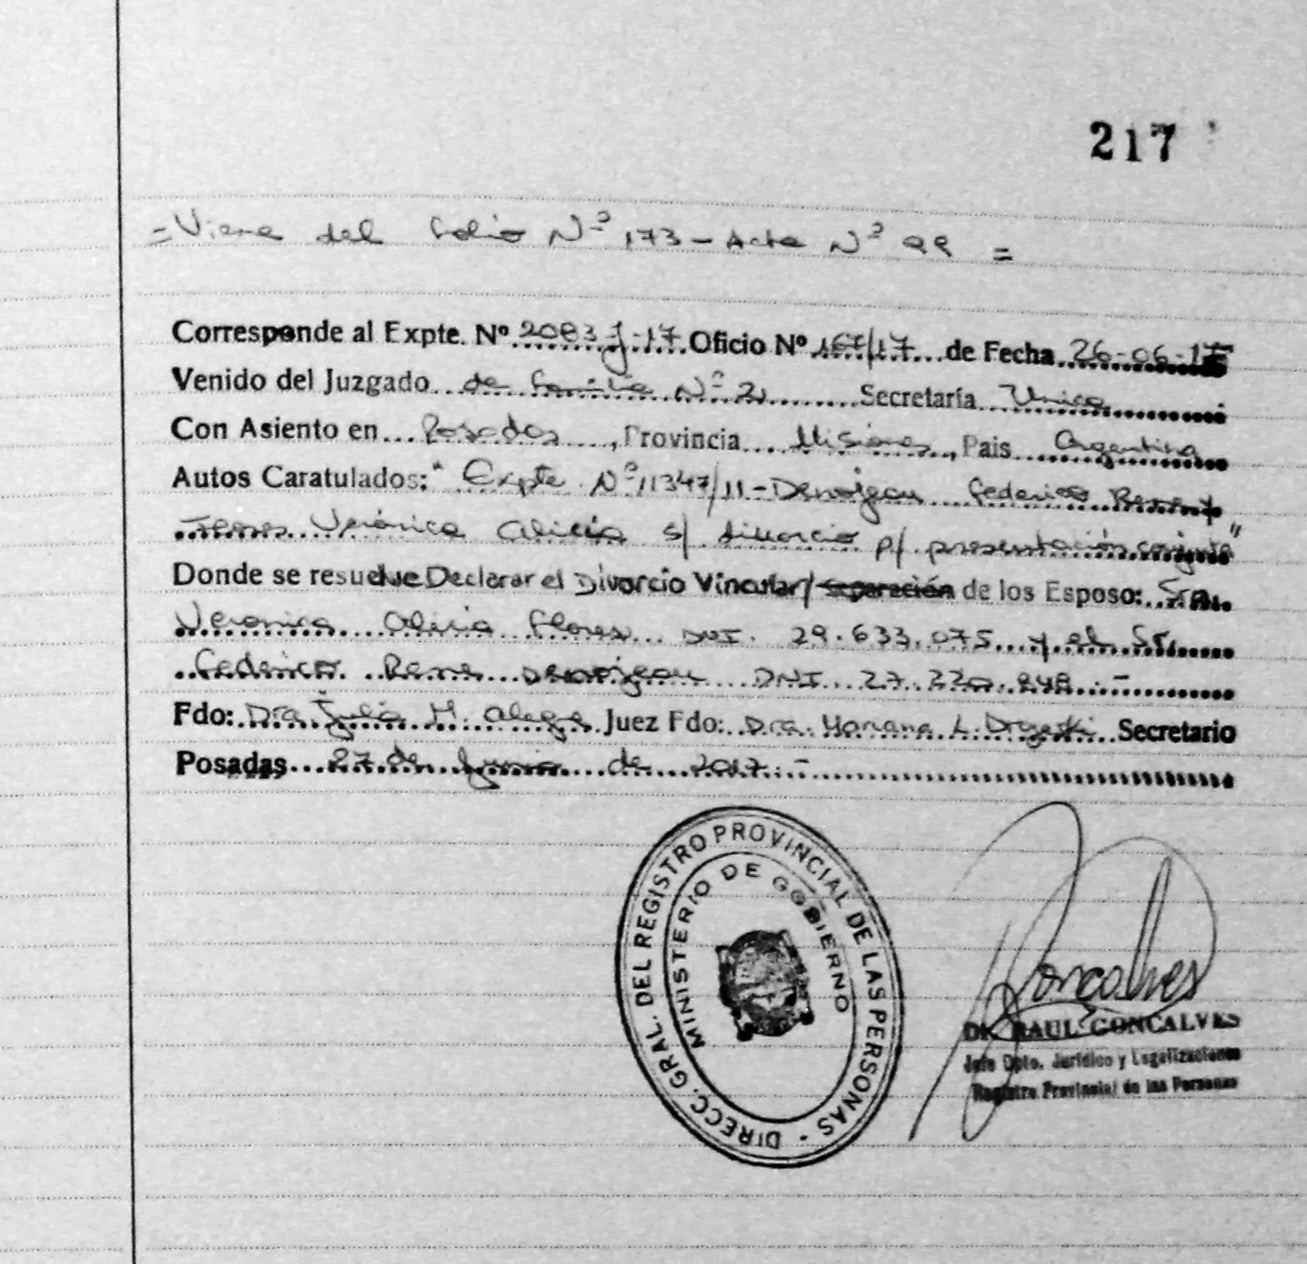 217
=Viene del folio Nº 173 - Acta Nº 99 =
Corresponde al Expte. Nº 2083 J-17 Oficio Nº 167/17 de Fecha 26-06-17
Venido del Juzgado de familia Nº 2 Secretaría Unica
Con Asiento en Posadas, Provincia Misiones, Pais Argentina
Autos Caratulados: "Expte Nº 11347/11 - Federico Rene y
Flores Verónica Alicia s/ divorcio p/ presentación conjunta"
Donde se resuelve Declarar el Divorcio Vincular/separación de los Esposo: Sra.
Veronica Alicia Flores DNI. 29.633.075 y el Sr.
Federico Rene DNI 27.220.848.-
Fdo: Dra Julia M. Alegre Juez Fdo: Dra. Mariana L. Secretario
Posadas 27 de Junio de 2017.-
DIRECC. GRAL. DEL REGISTRO PROVINCIAL DE LAS PERSONAS -
MINISTERIO DE GOBIERNO
Goncalves
Dr. RAUL GONCALVES
Jefe Dpto. Jurídico y Legalizaciones
Registro Provincial de las Personas